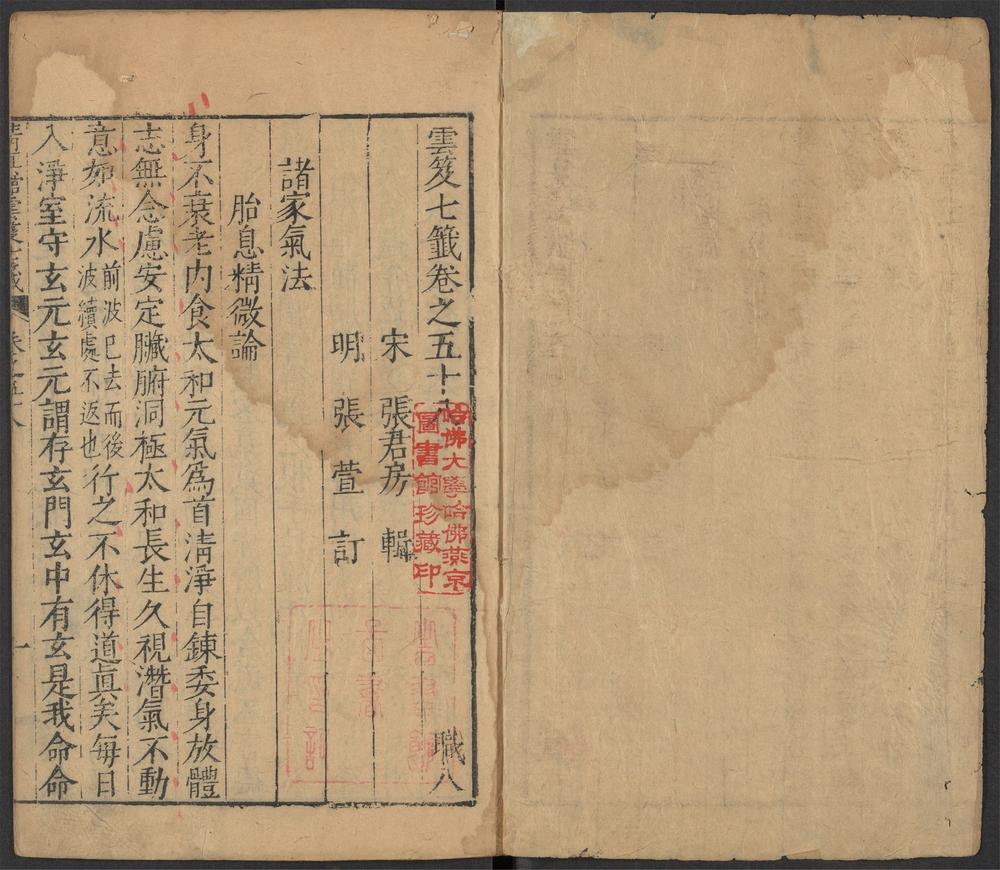 雲笈七籤卷之五十八 職八
宋 張君房 輯
明 張萱 訂
諸家氣法
胎息精微論
身不衰老內食太和元氣爲首清淨自錬委身放體
志無念慮安定臟腑洞極太和長生久視潛氣不動
意如流水前波已去而後波續處不返也行之不休得道眞矣每日
入淨室守玄元玄元謂存玄門玄中有玄是我命命
卷之五十八 一
哈佛大學哈佛燕京
圖書館珍藏印